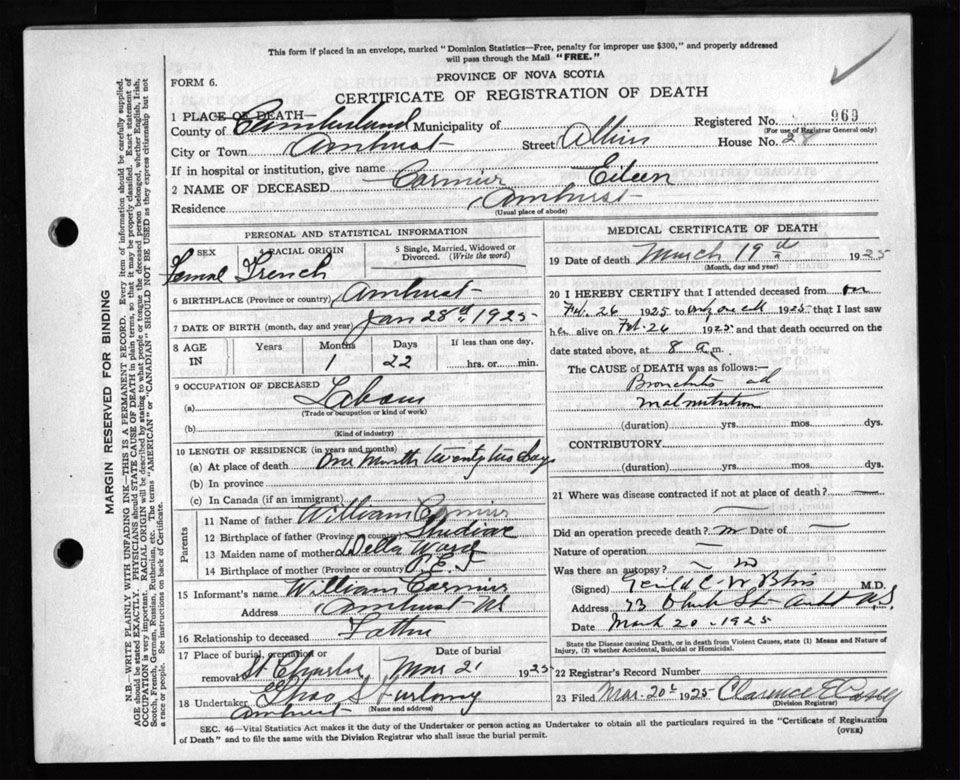 This form if placed in an envelope, marked "Dominion Statistics—Free, penalty for improper use $300," and properly addressed
will pass through the Mail "FREE."
PROVINCE OF NOVA SCOTIA
FORM 6.
CERTIFICATE OF REGISTRATION OF DEATH
1 PLACE OF DEATH—
Registered No. 969
(For use of Registrar General only)
County of Cumberland Municipality of
City or Town Amherst Street Albion House No. 28
If in hospital or institution, give name
2 NAME OF DECEASED Cormier Eileen
Residence Amherst
(Usual place of abode)
PERSONAL AND STATISTICAL INFORMATION
SEX
4 RACIAL ORIGIN
5 Single, Married, Widowed or Divorced. (Write the word)
Femal French
6 BIRTHPLACE (Province or country) Amherst
7 DATE OF BIRTH (month, day and year) Jan 28th 1925
8 AGE IN Years Months Days If less than one day,
1 22 hrs. or min.
9 OCCUPATION OF DECEASED
(a)
(Trade or occupation or kind of work)
(b)
(Kind of industry)
10 LENGTH OF RESIDENCE (in years and months)
(a) At place of death One month twenty two days
(b) In province
(c) In Canada (if an immigrant)
Parents
11 Name of father William Cormier
12 Birthplace of father (Province or country)
13 Maiden name of mother Della Ward
14 Birthplace of mother (Province or country) P.E.I
15 Informant's name William Cormier
Address Amherst NS
16 Relationship to deceased Father
17 Place of burial, cremation or removal St Charles
Date of burial Mar 21 1925
18 Undertaker Furlong
(Name and address)
Amherst
MEDICAL CERTIFICATE OF DEATH
19 Date of death March 19th 1925
(Month, day and year)
20 I HEREBY CERTIFY that I attended deceased from on
Feb. 26 1925 to only once 1925 that I last saw
her alive on Feb. 26 1925 and that death occurred on the
date stated above, at 8 a.m.
The CAUSE of DEATH was as follows:—
Bronchitis and
malnutrition
(duration) yrs. mos. dys.
CONTRIBUTORY
(duration) yrs. mos. dys.
21 Where was disease contracted if not at place of death? —
Did an operation precede death? no Date of —
Nature of operation —
Was there an autopsy? — no
(Signed) M.D.
Address N.S.
Date March 20 - 1925
State the Disease causing Death, or in death from Violent Causes, state (1) Means and Nature of
Injury, (2) whether Accidental, Suicidal or Homicidal.
22 Registrar's Record Number
23 Filed Mar. 20th 1925 Clarence E Casey
(Division Registrar)
SEC. 46—Vital Statistics Act makes it the duty of the Undertaker or person acting as Undertaker to obtain all the particulars required in the "Certificate of Registration
of Death" and to file the same with the Division Registrar who shall issue the burial permit.
(OVER)
MARGIN RESERVED FOR BINDING
N.B.—WRITE PLAINLY WITH UNFADING INK—THIS IS A PERMANENT RECORD. Every item of information should be carefully supplied.
AGE should be stated EXACTLY. PHYSICIANS should STATE CAUSE OF DEATH in plain terms, so that it may be properly classified. Exact statement of
OCCUPATION is very important. RACIAL ORIGIN will be described by stating to what people or tongue the deceased person belonged, whether English, Irish,
Scotch, French, German, Russian, Ruthenian, etc. The terms "AMERICAN" or "CANADIAN" SHOULD NOT BE USED as they express citizenship but not
a race or people. See instructions on back of Certificate.